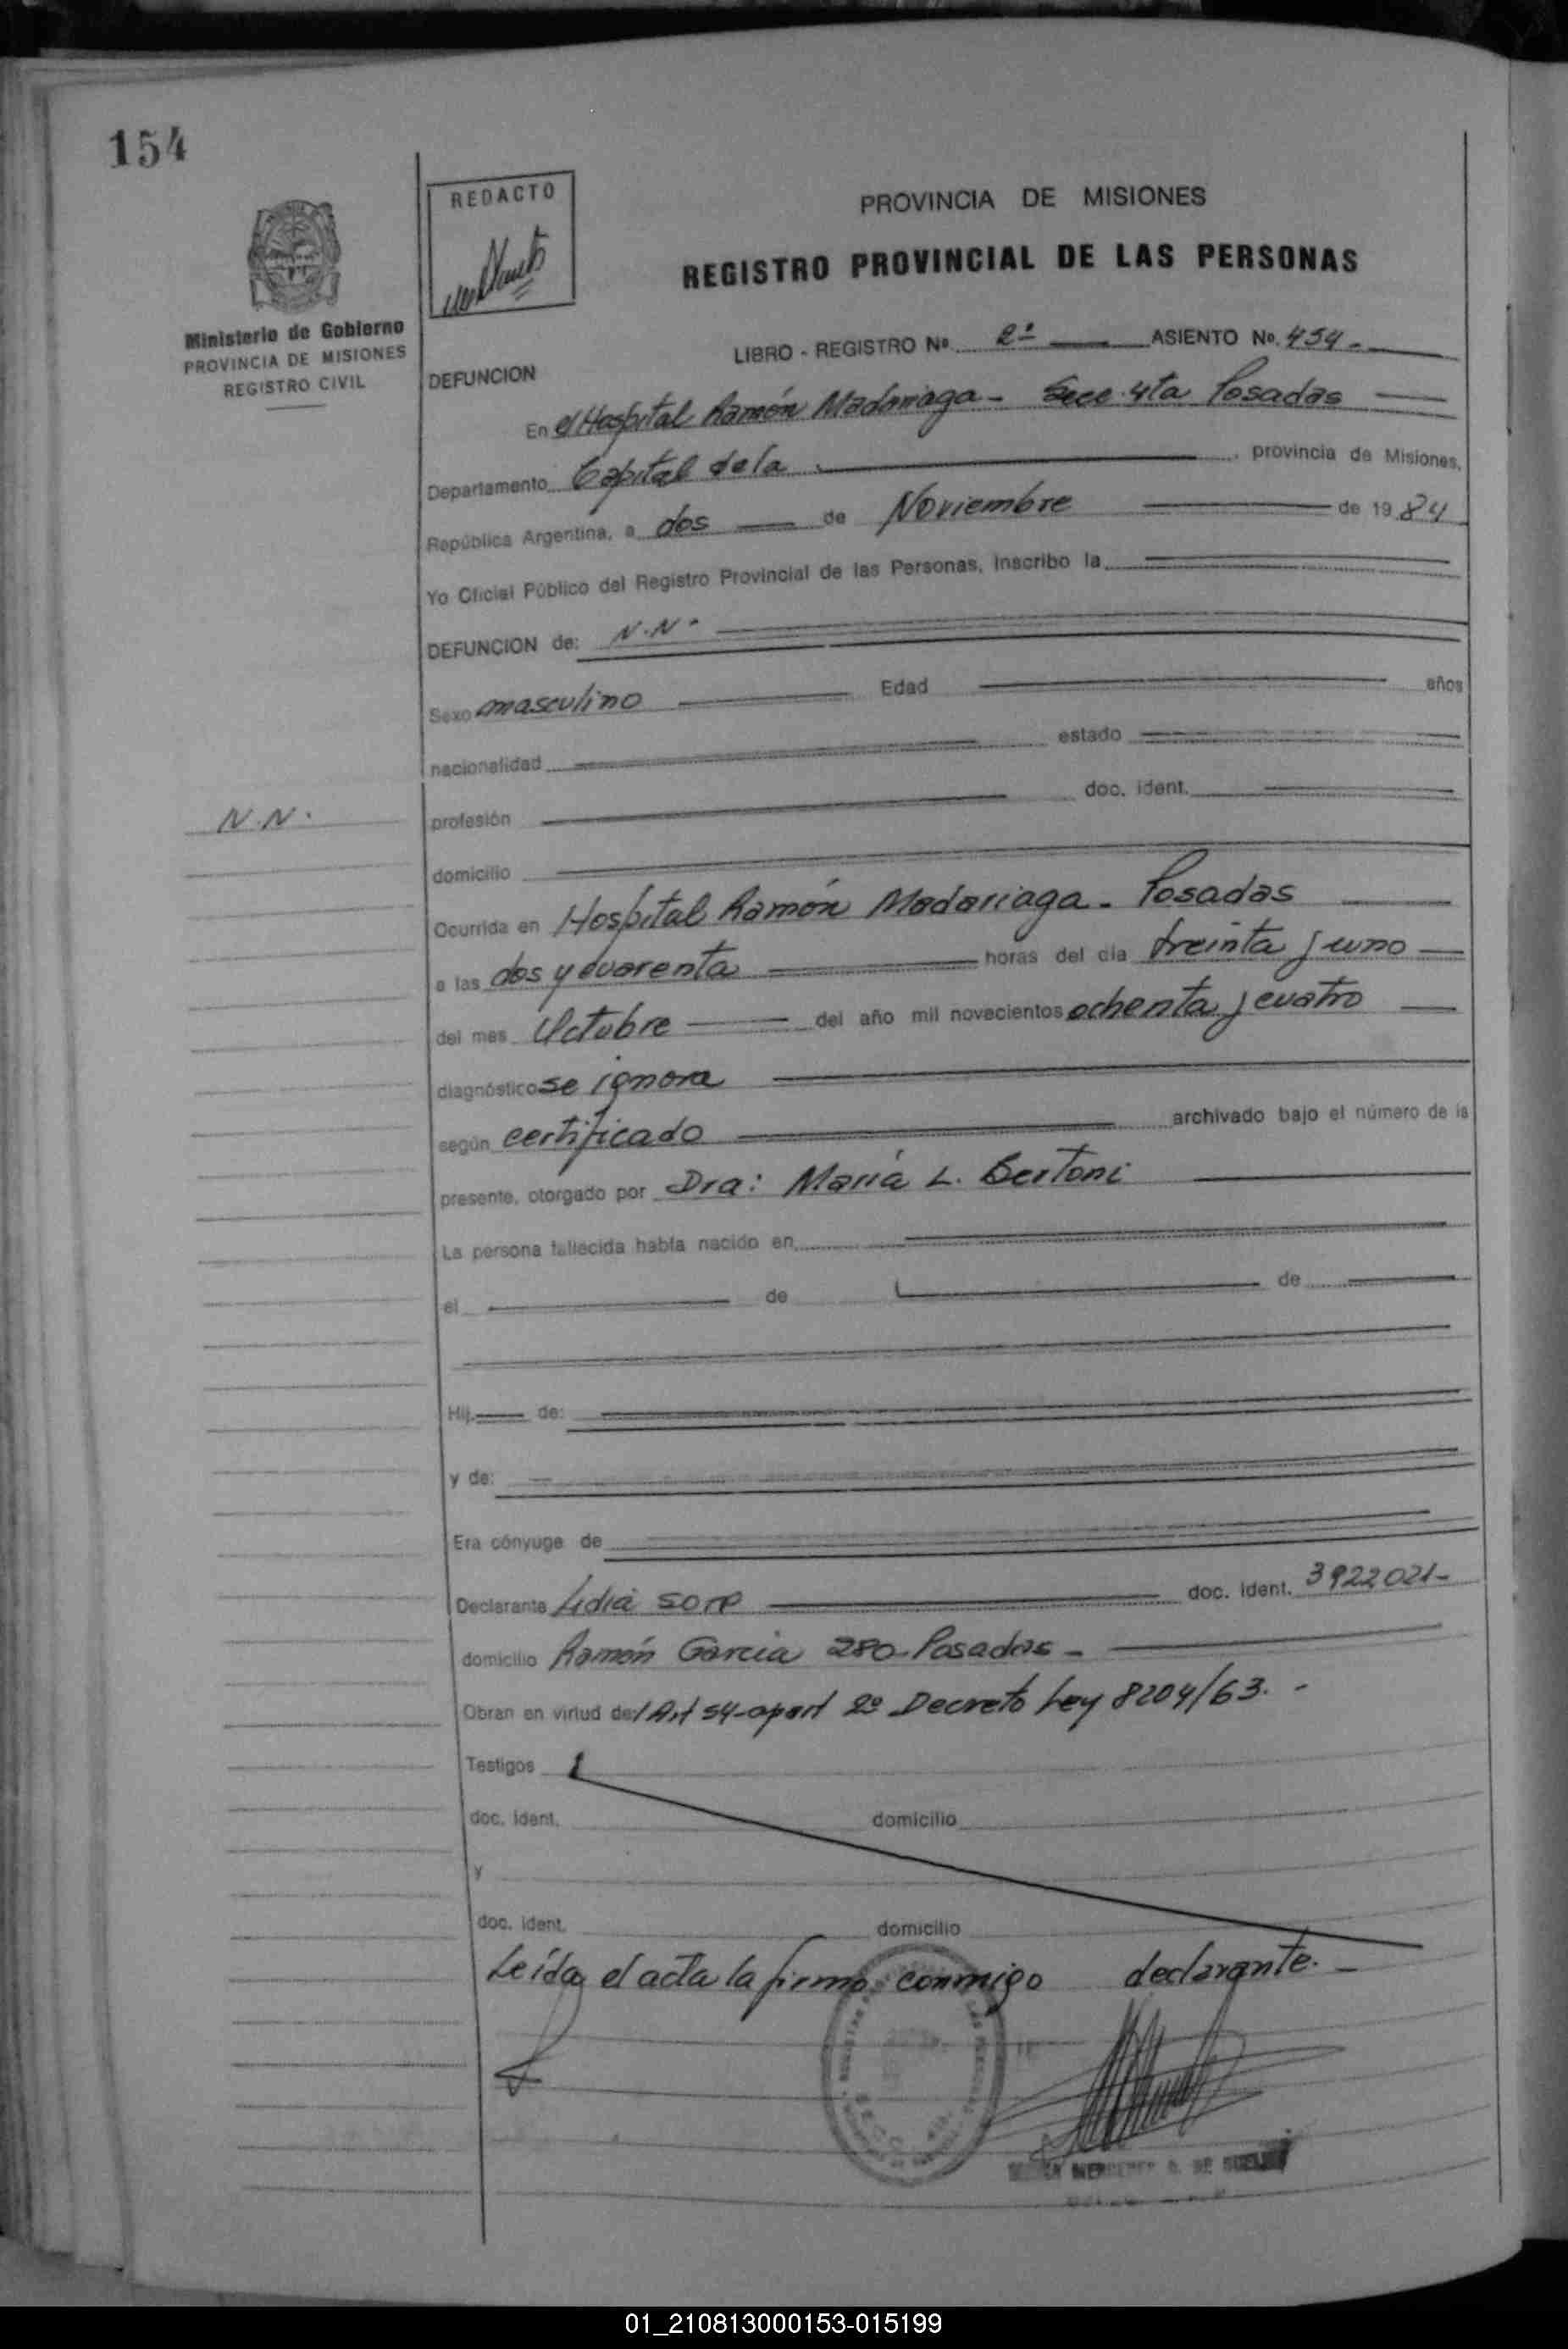 154
REDACTO
PROVINCIA DE MISIONES
REGISTRO PROVINCIAL DE LAS PERSONAS
Ministerio de Gobierno
PROVINCIA DE MISIONES
REGISTRO CIVIL
LIBRO - REGISTRO Nº 2º ASIENTO Nº. 454.
DEFUNCION
En el Hospital Ramón Madariaga - Secc. 4ta Posadas
Departamento Capital de la provincia de Misiones,
República Argentina, a dos de Noviembre de 1984
Yo Oficial Público del Registro Provincial de las Personas, inscribo la
DEFUNCION de: N.N.
Sexo masculino Edad años
nacionalidad estado
N.N.
profesión doc. ident.
domicilio
Ocurrida en Hospital Ramón Madariaga - Posadas
a las dos y cuarenta horas del día treinta y uno
del mes Octubre del año mil novecientos ochenta y cuatro
diagnóstico se ignora
según certificado archivado bajo el número de la
presente, otorgado por Dra: María L. Bertoni
La persona fallecida había nacido en
el de de
Hij de:
y de:
Era cónyuge de
Declarante Lidia doc. ident. 3922021-
domicilio Ramón Garcia 280-Posadas-
Obran en virtud del Art 54-apart 2º Decreto Ley 8204/63. -
Testigos
doc. ident. domicilio
y
doc. ident. domicilio
Leída el acta la firma conmigo declarante. -
01_210813000153-015199